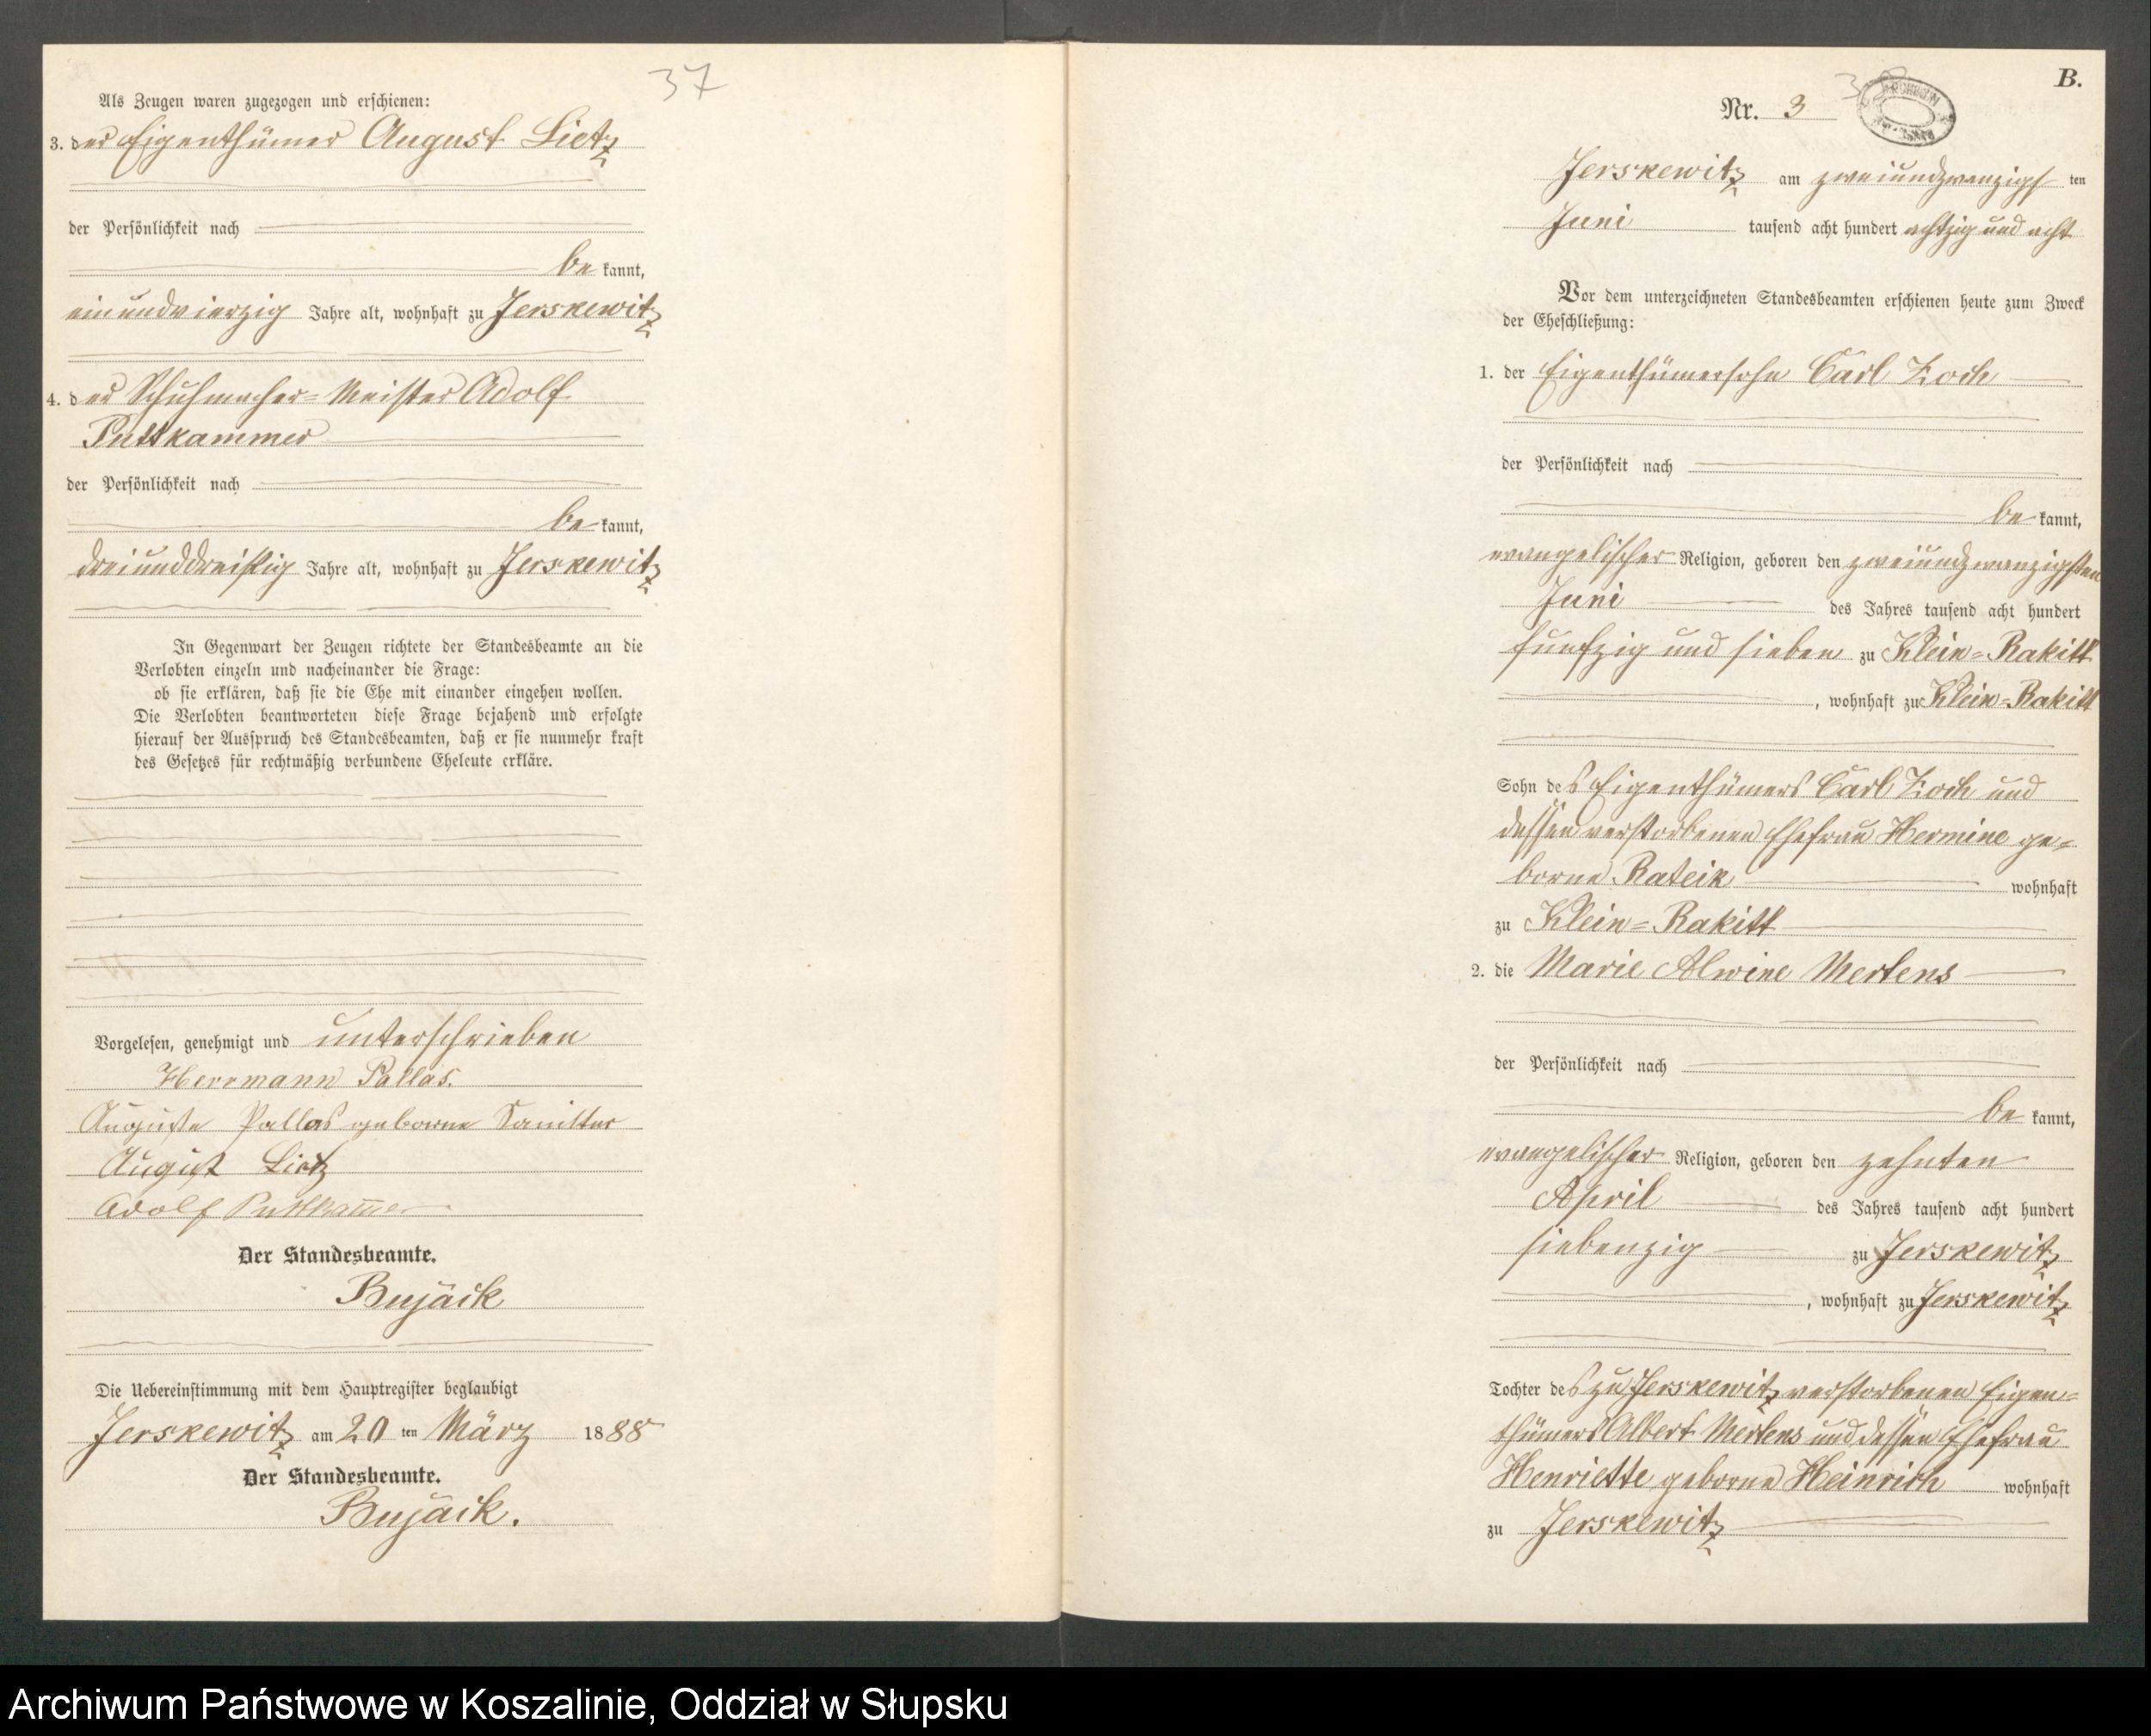 37
Als Zeugen waren zugezogen und erschienen:
3. der Eigenthümer August Lietz
der Persönlichkeit nach
be kannt,
einundvierzig Jahre alt, wohnhaft zu Jerskewitz
4. der Schuhmacher-Meister Adolf
Puttkammer
der Persönlichkeit nach
be kannt,
dreiunddreißig Jahre alt, wohnhaft zu Jerskewitz
In Gegenwart der Zeugen richtete der Standesbeamte an die
Verlobten einzeln und nacheinander die Frage:
ob sie erklären, daß sie die Ehe mit einander eingehen wollen.
Die Verlobten beantworteten diese Frage bejahend und erfolgte
hierauf der Ausspruch des Standesbeamten, daß er sie nunmehr kraft
des Gesetzes für rechtmäßig verbundene Eheleute erkläre.
Vorgelesen, genehmigt und unterschrieben
Herrmann Pallas.
Auguste Pallas geborne
August Lietz
Adolf Puttkam̅er
Der Standesbeamte.
Bujäck
Die Uebereinstimmung mit dem Hauptregister beglaubigt
Jerskewitz am 20 ten März 1888
Der Standesbeamte.
Bujäck.
B.
Nr. 3
Jerskewitz am zweiundzwanzigs ten
Juni tausend acht hundert achtzig und acht
Vor dem unterzeichneten Standesbeamten erschienen heute zum Zweck
der Eheschließung:
1. der Eigenthümersohn Carl Koch
der Persönlichkeit nach
be kannt,
evangelischer Religion, geboren den zweiundzwanzigsten
Juni des Jahres tausend acht hundert
funfzig und sieben zu Klein-Rakitt
, wohnhaft zu Klein-Rakitt
Sohn des Eigenthümers Carl Koch und
dessen verstorbenen Ehefrau Hermine ge-
borne Rateik wohnhaft
zu Klein-Rakitt
2. die Marie Alwine Mertens
der Persönlichkeit nach
be kannt,
evangelischer Religion, geboren den zehnten
April des Jahres tausend acht hundert
siebenzig zu Jerskewitz
, wohnhaft zu Jerskewitz
Tochter des zu Jerskewitz verstorbenen Eigen-
thümers Albert Mertens und dessen Ehefrau
Henriette geborne Heinrich wohnhaft
zu Jerskewitz
Archiwum Państwowe w Koszalinie, Oddział w Słupsku